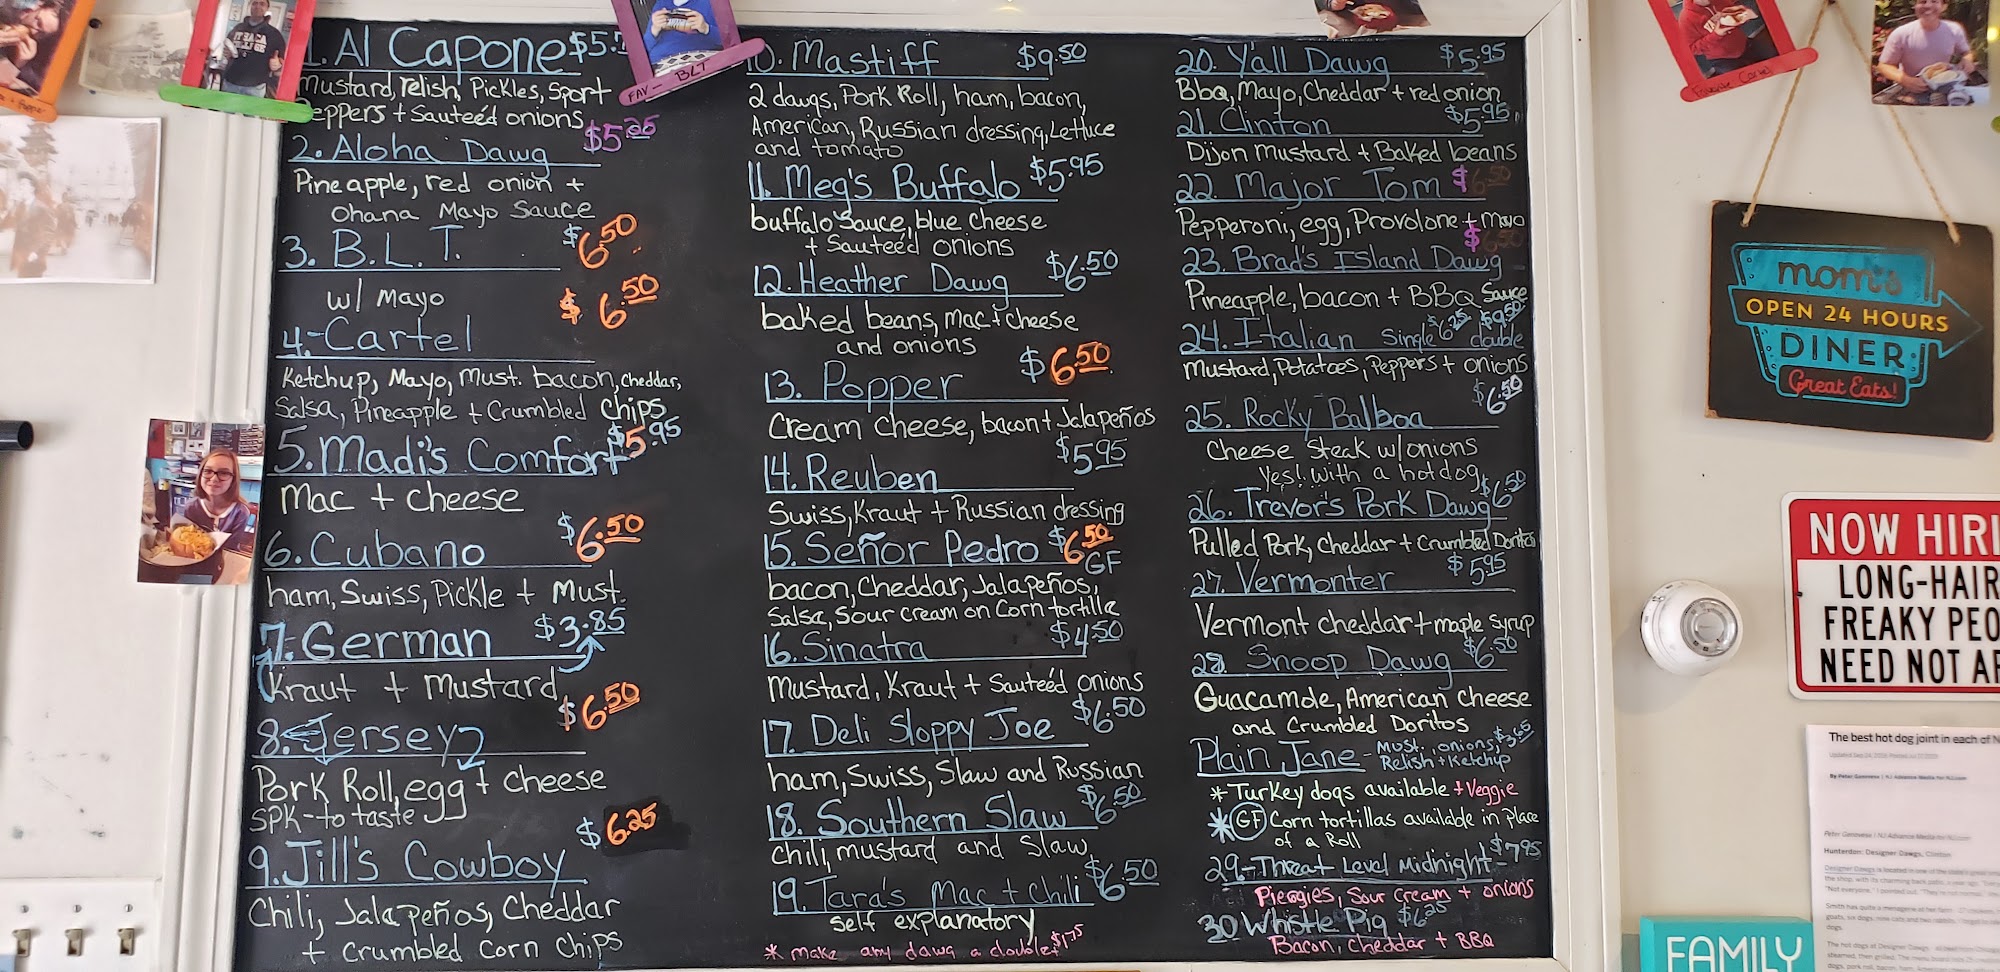 1. Al Capone $5.
Mustard, relish, Pickles, Sport
Peppers + Sauteéd onions
2. Aloha Dawg $5.25
Pineapple, red onion +
Ohana Mayo Sauce
3. B.L.T. $6.50
w/ Mayo
4. Cartel $6.50
Ketchup, Mayo, Must. bacon, cheddar,
Salsa, Pineapple + Crumbled chips
5. Madi's Comfort $5.95
Mac + cheese
6. Cubano $6.50
ham, Swiss, Pickle + Must.
7. German $3.85
Kraut + Mustard
8. Jersey $6.50
Pork Roll, egg + cheese
SPK - to taste
9. Jill's Cowboy $6.25
Chili, Jalapeños, Cheddar
+ Crumbled Corn Chips
10. Mastiff $9.50
2 dawgs, Pork Roll, ham, bacon,
American, Russian dressing, Lettuce
and tomato
11. Meg's Buffalo $5.95
buffalo Sauce, blue cheese
+ Sauteéd onions
12. Heather Dawg $6.50
baked beans, Mac + cheese
and onions
13. Popper $6.50
Cream cheese, bacon + Jalapeños
14. Reuben $5.95
Swiss, Kraut + Russian dressing
15. Señor Pedro $6.50
GF
bacon, Cheddar, Jalapeños,
Salsa, Sour cream on Corn tortilla
16. Sinatra $4.50
Mustard, Kraut + Sauteéd onions
17. Deli Sloppy Joe $6.50
ham, Swiss, Slaw and Russian
18. Southern Slaw $6.50
Chili, mustard and Slaw
19. Tara's Mac + Chili $6.50
self explanatory
* make any dawg a double $1.75
20. Y'all Dawg $5.95
Bbq, Mayo, Cheddar + red onion
21. Clinton $5.95
Dijon mustard + Baked beans
22. Major Tom $6.50
Pepperoni, egg, Provolone + Mayo
23. Brad's Island Dawg $6.50
Pineapple, bacon + BBQ Sauce
24. Italian Single $6.25 $9.50 double
Mustard, Potatoes, Peppers + onions
25. Rocky Balboa $6.50
Cheese Steak w/onions
Yes! With a hotdog
26. Trevor's Pork Dawg $6.50
Pulled Pork, Cheddar + Crumbled Doritos
27. Vermonter $5.95
Vermont cheddar + maple syrup
28. Snoop Dawg $6.50
Guacamole, American Cheese
and Crumbled Doritos
Plain Jane - Must. onions, $3.65
Relish + Ketchup
* Turkey dogs available + Veggie
* GF Corn tortillas available in place
of a Roll
29. Threat Level Midnight - $7.95
Pierogies, Sour Cream + onions
30 Whistle Pig $6.25
Bacon, Cheddar + BBQ
FAV - BLT
ITHACA
Favorite Cartel
mom's
OPEN 24 HOURS
DINER
Great Eats!
NOW HIRI
LONG-HAIR
FREAKY PEO
NEED NOT AP
The best hot dog joint in each of N
By Peter Genovese | NJ Advance Media for NJ.com
Peter Genovese | NJ Advance Media for NJ.com
Hunterdon: Designer Dawgs, Clinton
FAMILY